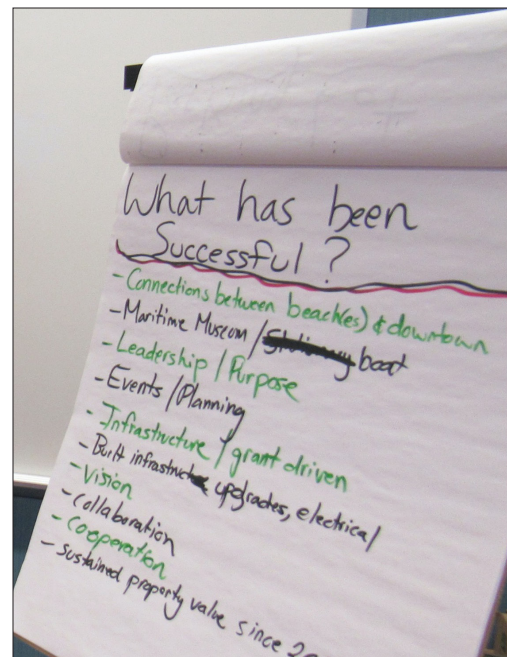 What has been
Successful?
- Connections between beach(es) & downtown
- Maritime Museum / boat
- Leadership / Purpose
- Events / Planning
- Infrastructure / grant driven
- Built infrastructure upgrades, electrical
- Vision
- Collaboration
- Cooperation
- Sustained property value since